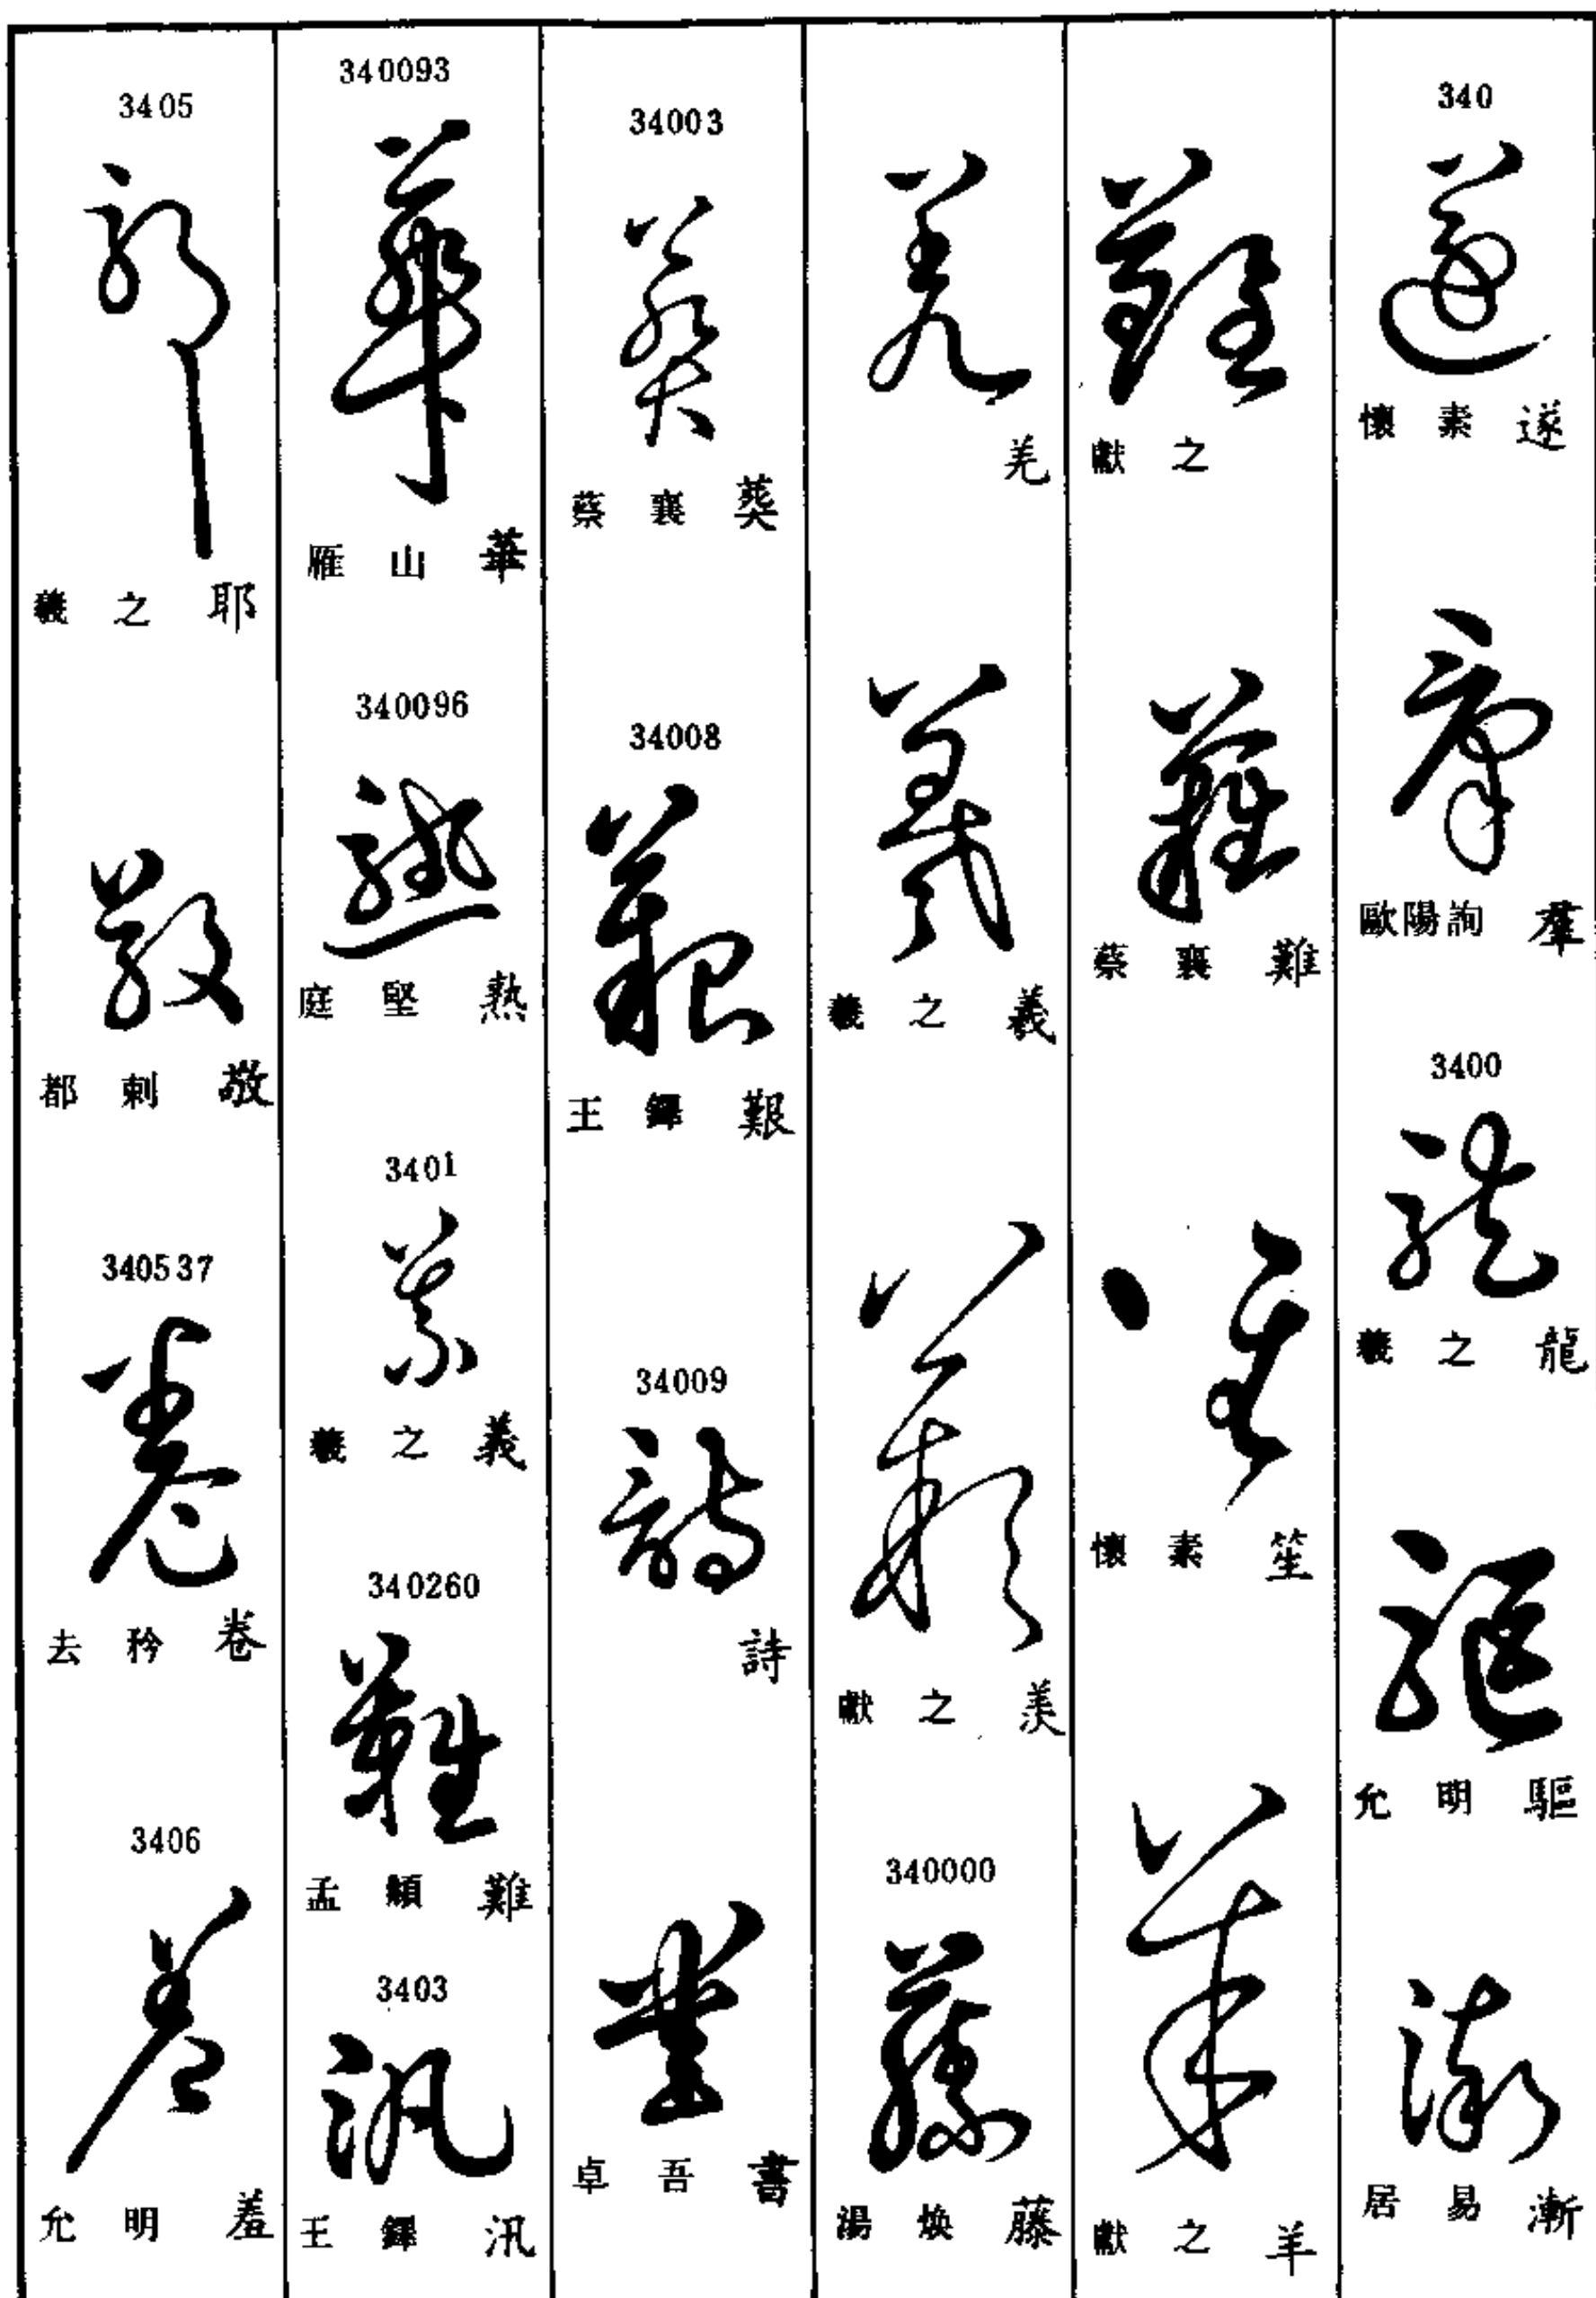 340
懷素 遂
歐陽詢 羣
3400
羲之 龍
允明 驅
居易 漸
獻之
蔡襄 難
懷素 笙
獻之 羊
羌
羲之 義
獻之 羨
340000
湯煥 藤
34003
蔡襄 葵
34008
王鐸 艱
34009
詩
卓吾 書
340093
雁山 華
340096
庭堅 熱
3401
羲之 義
340260
孟頫 難
3403
王鐸 汛
3405
羲之 耶
都刺 敬
340537
去矜 卷
3406
允明 羞